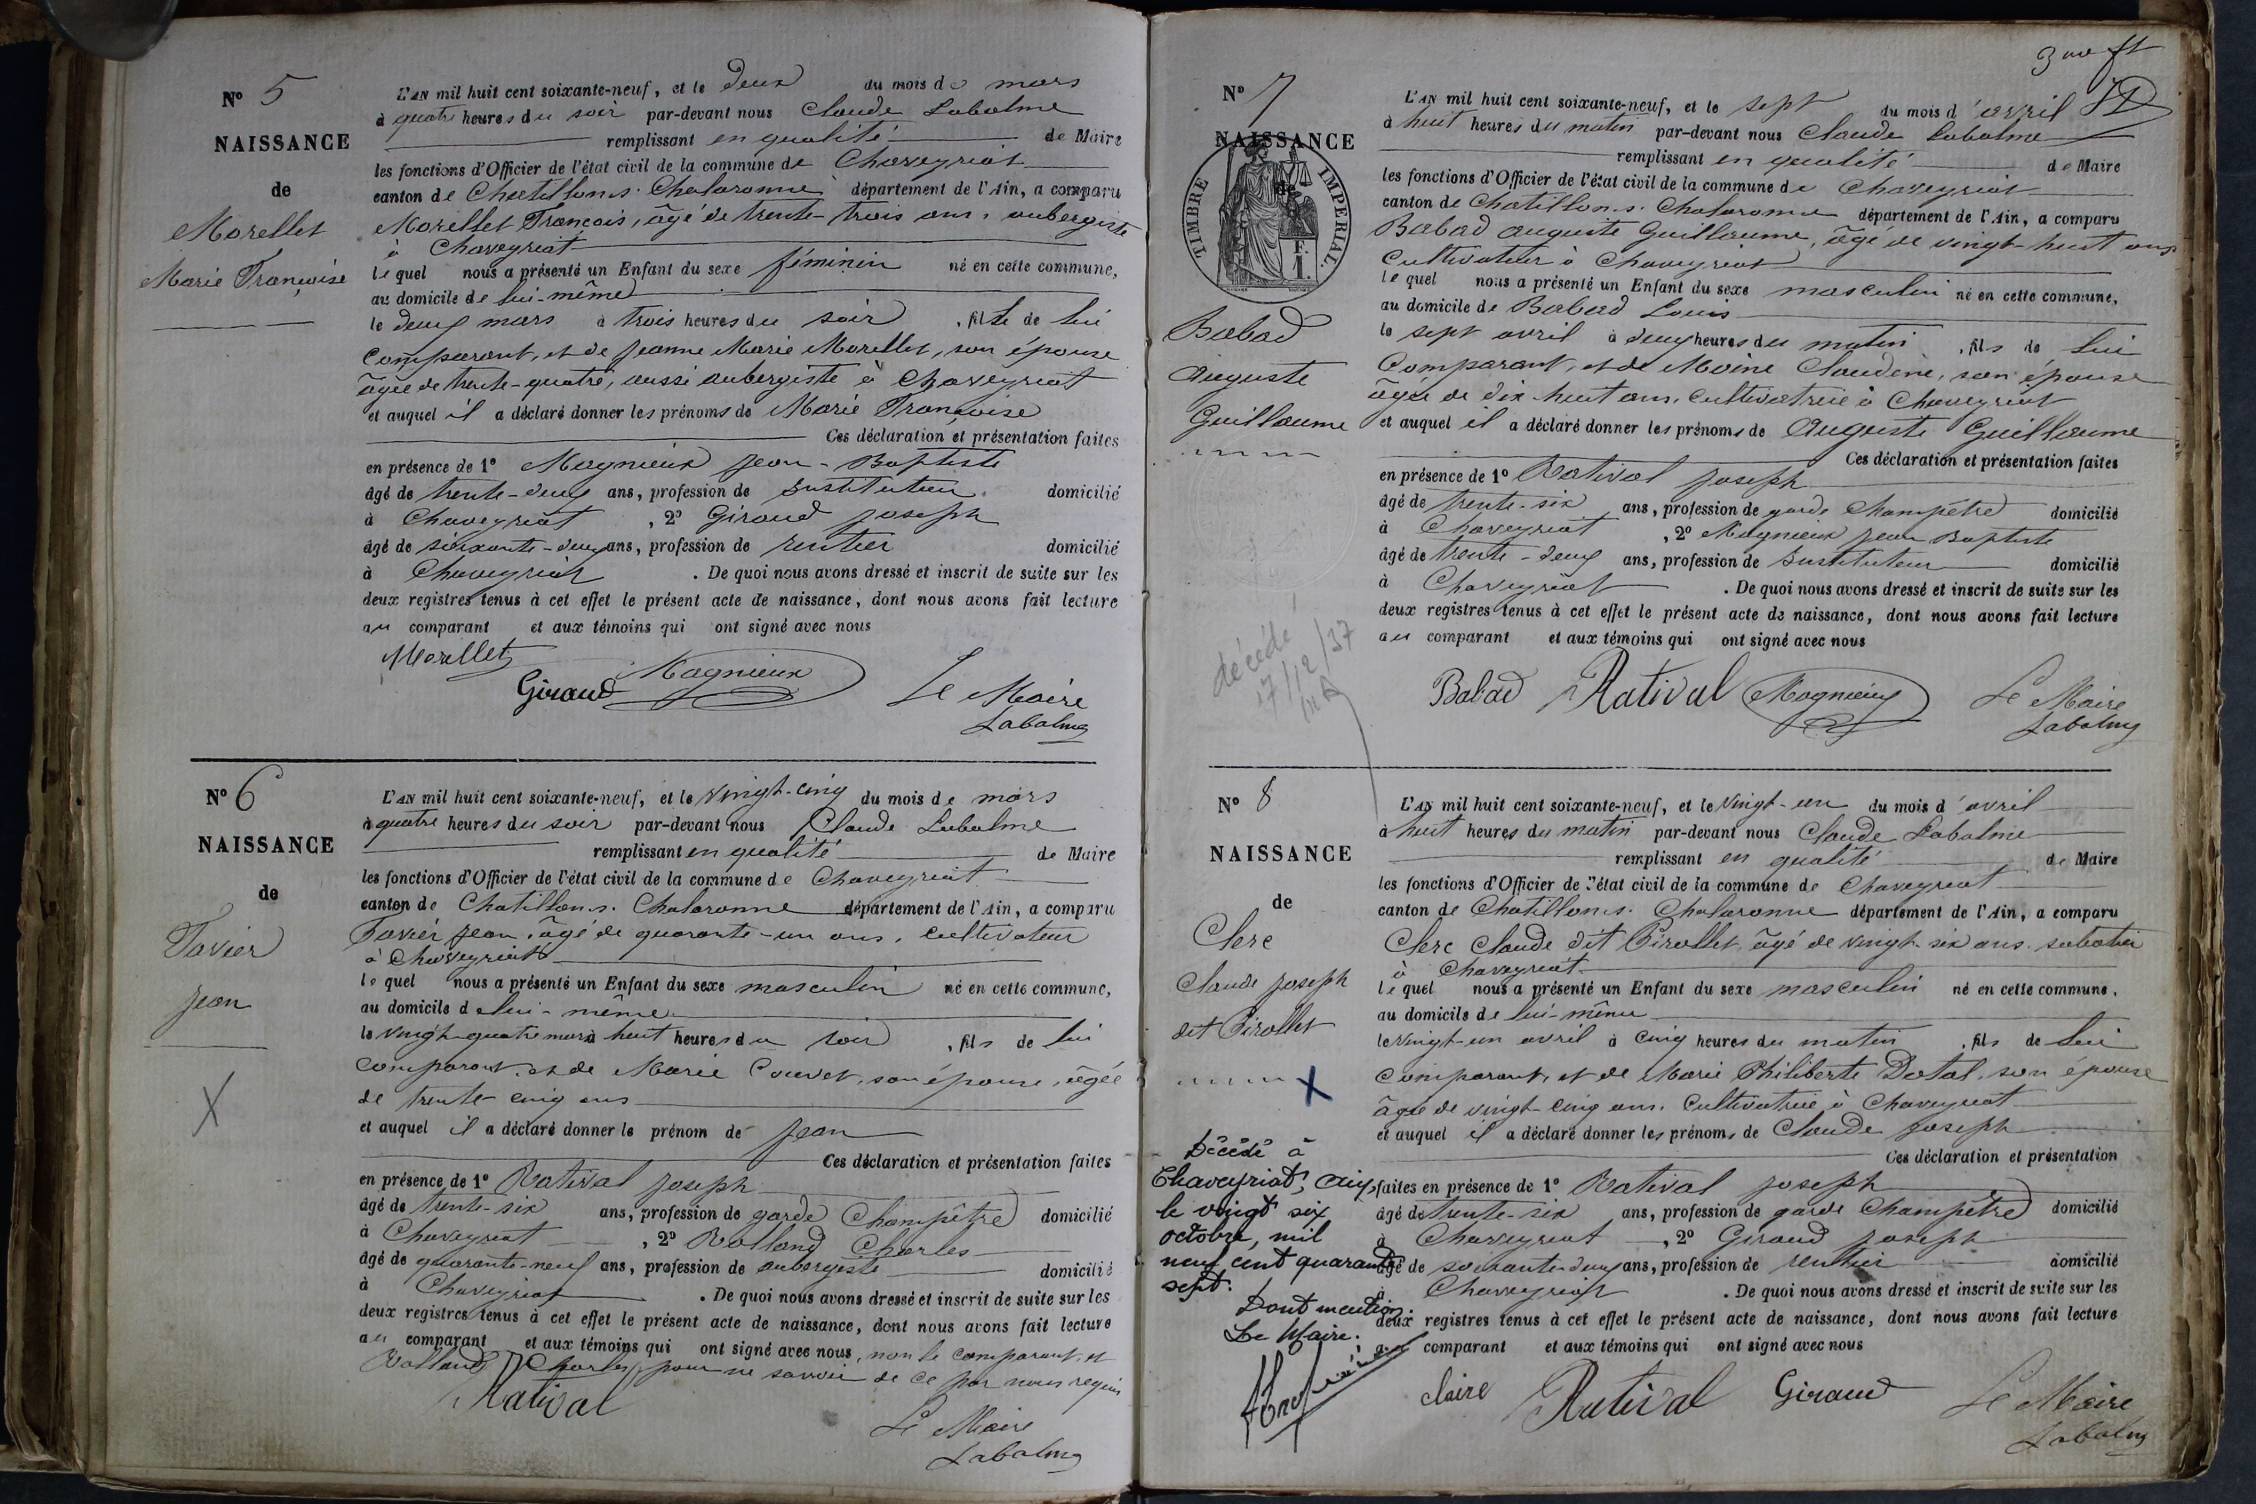 N° 5
NAISSANCE
de
Morellet
Marie Françoise
L'AN mil huit cent soixante-neuf, et le deux du mois de mars
à quatre heures du soir par-devant nous Claude Labalme
remplissant en qualité de Maire
les fonctions d'Officier de l'état civil de la commune de Chaveyriat
canton de Chatillon s. Chalaronne département de l'Ain, a comparu
Morellet François, âgé de trente-trois ans, aubergiste
à Chaveyriat
lequel nous a présenté un Enfant du sexe féminin né en cette commune,
au domicile de lui-même
le deux mars à trois heures du soir, fille de lui
comparant, et de Jeanne Marie Morellet, son épouse
âgée de trente-quatre, aussi aubergiste à Chaveyriat
et auquel il a déclaré donner les prénoms de Marie Françoise
Ces déclaration et présentation faites
en présence de 1° Magnieux Jean-Baptiste
âgé de trente-deux ans, profession de Instituteur domicilié
à Chaveyriat, 2° Giraud Joseph
âgé de soixante-deux ans, profession de rentier domicilié
à Chaveyriat. De quoi nous avons dressé et inscrit de suite sur les
deux registres tenus à cet effet le présent acte de naissance, dont nous avons fait lecture
au comparant et aux témoins qui ont signé avec nous
Morellet
Giraud Magnieux Le Maire
Labalme
N° 6
NAISSANCE
de
Favier
Jean
X
L'AN mil huit cent soixante-neuf, et le vingt-cinq du mois de mars
à quatre heures du soir par-devant nous Claude Labalme
remplissant en qualité de Maire
les fonctions d'Officier de l'état civil de la commune de Chaveyriat
canton de Chatillon s. Chalaronne département de l'Ain, a comparu
Favier Jean, âgé de quarante-un ans, cultivateur
à Chaveyriat
lequel nous a présenté un Enfant du sexe masculin né en cette commune,
au domicile de lui-même
le vingt-quatre mars à huit heures du soir, fils de lui
comparant, et de Marie Couvet, son épouse, âgée
de trente cinq ans
et auquel il a déclaré donner le prénom de Jean
Ces déclaration et présentation faites
en présence de 1° Ratival Joseph
âgé de trente-six ans, profession de garde Champêtre domicilié
à Chaveyriat, 2° Rolland Charles
âgé de quarante-neuf ans, profession de aubergiste domicilié
à Chaveyriat. De quoi nous avons dressé et inscrit de suite sur les
deux registres tenus à cet effet le présent acte de naissance, dont nous avons fait lecture
au comparant et aux témoins qui ont signé avec nous, non le comparant, et
Rolland Charles, pour ne savoir de ce par nous requis
Ratival
Le Maire
Labalme
3me ft
N° 7
NAISSANCE
de
TIMBRE IMPERIAL
Babad
Auguste
Guillaume
décédé
17/12/37
L'AN mil huit cent soixante-neuf, et le sept du mois d'avril
à huit heures du matin par-devant nous Claude Labalme
remplissant en qualité de Maire
les fonctions d'Officier de l'état civil de la commune de Chaveyriat
canton de Chatillon s. Chalaronne département de l'Ain, a comparu
Babad Auguste Guillaume, âgé de vingt-huit ans
Cultivateur à Chaveyriat
lequel nous a présenté un Enfant du sexe masculin né en cette commune,
au domicile de Babad Louis
le sept avril à deux heures du matin, fils de lui
Comparant, et de Moine Claudine, son épouse
âgée de dix-huit ans, cultivatrice à Chaveyriat
et auquel il a déclaré donner les prénoms de Auguste Guillaume
Ces déclaration et présentation faites
en présence de 1° Ratival Joseph
âgé de trente-six ans, profession de garde champêtre domicilié
à Chaveyriat, 2° Magnieux Jean Baptiste
âgé de trente-deux ans, profession de Instituteur domicilié
à Chaveyriat. De quoi nous avons dressé et inscrit de suite sur les
deux registres tenus à cet effet le présent acte de naissance, dont nous avons fait lecture
au comparant et aux témoins qui ont signé avec nous
Babad Ratival Magnieux Le Maire
Labalme
N° 8
NAISSANCE
de
Clerc
Claude Joseph
dit Pirollet
X
Décédé à
Chaveyriat, Ain,
le vingt six
octobre, mil
neuf cent quarante
sept.
Dont mention.
Le Maire.
L'AN mil huit cent soixante-neuf, et le vingt-un du mois d'avril
à huit heures du matin par-devant nous Claude Labalme
remplissant en qualité de Maire
les fonctions d'Officier de l'état civil de la commune de Chaveyriat
canton de Chatillon s. Chalaronne département de l'Ain, a comparu
Clerc Claude dit Pirollet, âgé de vingt six ans, sabotier
à Chaveyriat
lequel nous a présenté un Enfant du sexe masculin né en cette commune,
au domicile de lui-même
le vingt-un avril à cinq heures du matin, fils de lui
comparant, et de Marie Philiberte Dotal, son épouse
âgée de vingt-cinq ans, cultivatrice à Chaveyriat
et auquel il a déclaré donner les prénoms de Claude Joseph
Ces déclaration et présentation
faites en présence de 1° Ratival Joseph
âgé de trente-six ans, profession de garde Champêtre domicilié
à Chaveyriat, 2° Giraud Joseph
âgé de soixante-deux ans, profession de rentier domicilié
à Chaveyriat. De quoi nous avons dressé et inscrit de suite sur les
deux registres tenus à cet effet le présent acte de naissance, dont nous avons fait lecture
au comparant et aux témoins qui ont signé avec nous
Claire Ratival Giraud Le Maire
Labalme